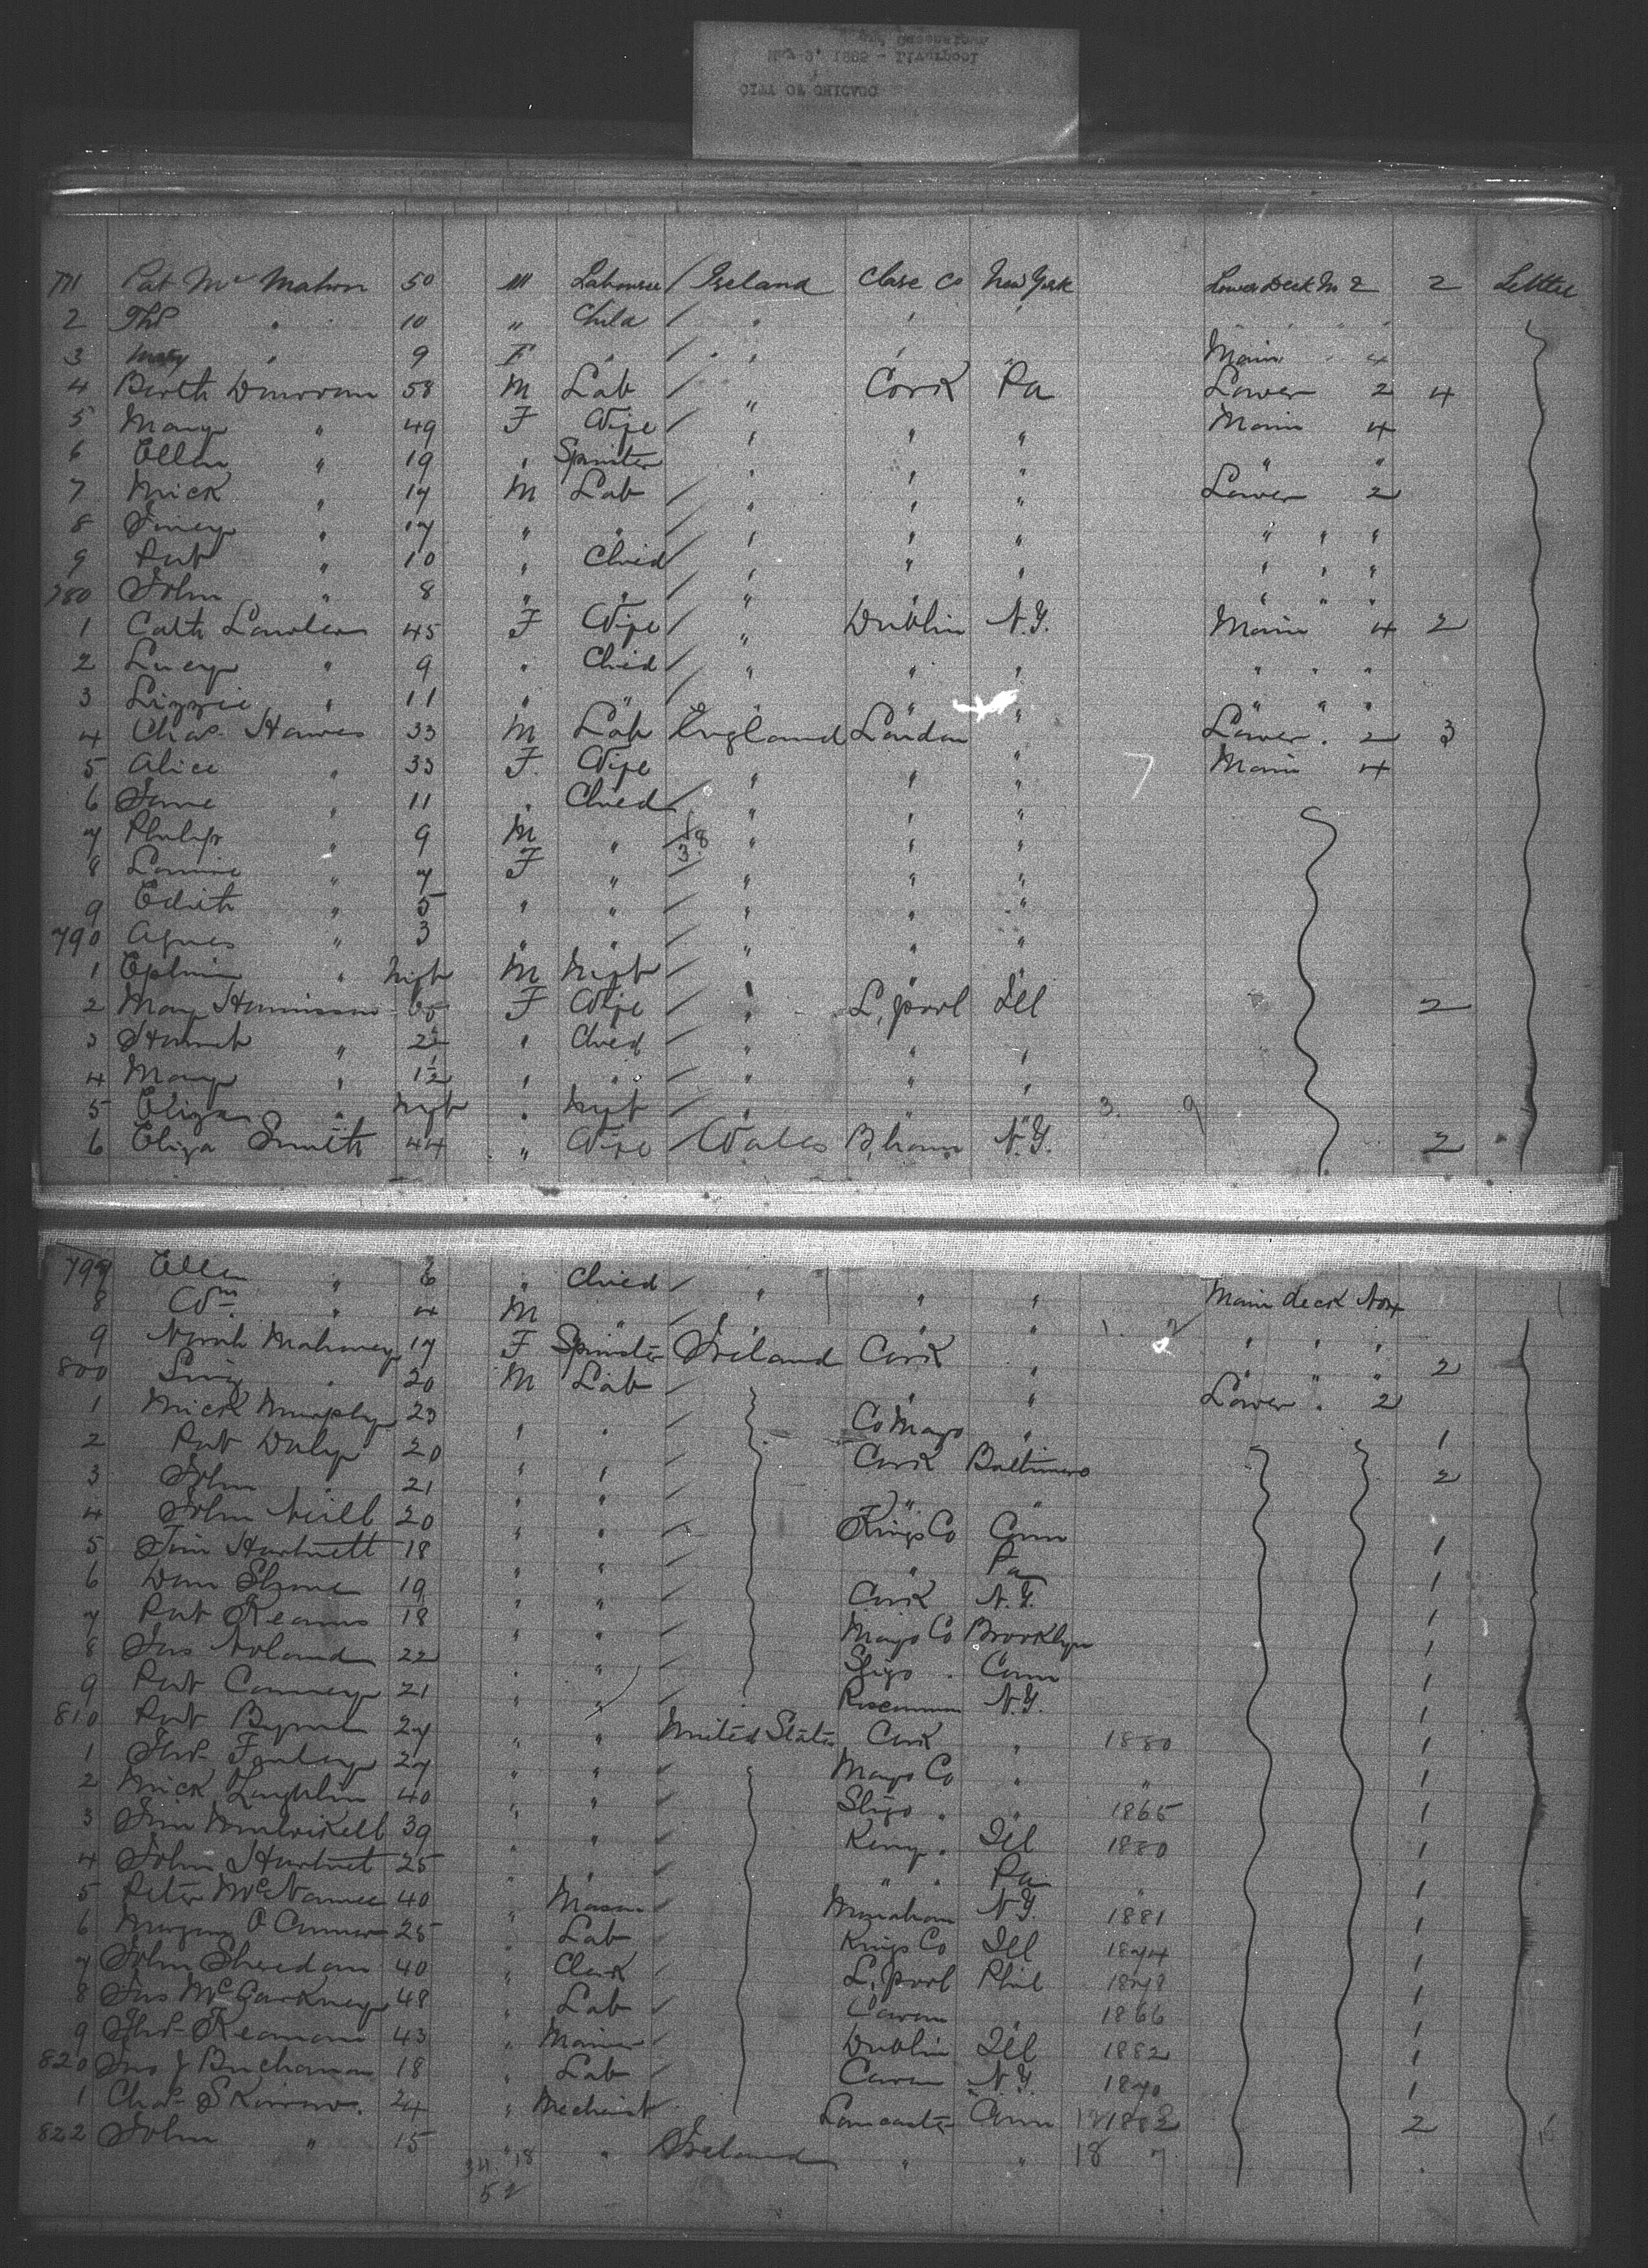 CITY OF CHICAGO
1885 - Liverpool
771 Pat McMahon 50 M Labourer / Ireland Clare Co New York Lower Deck No 2 2 Settler
2 Thos " 10 " Child / " " "
3 Mary " 9 F " / " " " Main " 4
4 Barth Donovan 58 M Lab / " Cork Pa Lower 2 4
5 Mary " 49 F Wife " " " Main 4
6 Ellen " 19 " Spinster " " " " "
7 Mick " 17 M Lab / " " " Lower 2
8 " 17 " " / " " " " " "
9 Pat " 10 " Child / " " " " " "
780 John " 8 " " / " " " " " "
1 Cath Lawler 45 F Wife / " Dublin N.Y. Main 4 2
2 Lucy " 9 " Child / " " " " " "
3 Lizzie " 11 " " / " " " " " "
4 Chas Hawes 33 M Lab England London " Lower " 2 3
5 Alice " 33 F Wife " " " Main 4
6 Jane " 11 " Child / " " "
7 Philip " 9 M " / " " "
8 " 7 F " / " " "
9 Edith " 5 " " / " " "
790 Agnes " 3 " " / " " "
1 " Inft M Inft / " " "
2 Mary F Wife / " L,pool Ill 2
3 " 2½ " Child / " " "
4 Mary " 1½ " " / " " "
5 Eliza " Inft " Inft / " " " 3. 9
6 Eliza Smith 44 " Wife / Wales B,ham N.Y. 2
797 Ellen " 6 " Child / " " " Main deck No 4
8 Wm " 4 M " / " " " " " "
9 Norah Mahoney 17 F Spinster Ireland Cork " " " " 2
800 " 20 M Lab / " " Lower " 2
1 Mick Murphy 23 " " / Co Mayo " 1
2 Pat Daly 20 " " / Cork Baltimore 2
3 John " 21 " " / " "
4 John Neill 20 " " / Kings Co Conn 1
5 Tim Hartnett 18 " " / " Pa 1
6 Dan Shine 19 " " / Cork N.Y. 1
7 Pat Kearns 18 " " / Mayo Co Brooklyn 1
8 Jas Noland 22 " " / Sligo " Conn 1
9 Pat Conney 21 " " / Roscommon N.Y. 1
810 Pat Byrne 27 " " United States Cork " 1880 1
1 Thos Farley 27 " " / Mayo Co " " 1
2 Mick Laughlin 40 " " / Sligo " " 1865 1
3 Jim 39 " " / Kerry " Ill 1880 1
4 John Hartnet 25 " " / " " Pa " 1
5 Peter McNamee 40 " Mason / Monahan N.Y. 1881 1
6 Morgan O Connor 25 " Lab / Kings Co Ill 1874 1
7 John Sheridan 40 " Clerk / L,pool Phil 1878 1
8 Jas 48 " Lab / Cavan " 1866 1
9 Thos 43 " / Dublin Ill 1882 1
820 Jno J Buchanan 18 " Lab / Cavan N.Y. 1870 1
1 Chas 24 " Mechanist / Lancaster Conn 1882 2
822 John " 15 " " Ireland " " 18 7
34. 18
52